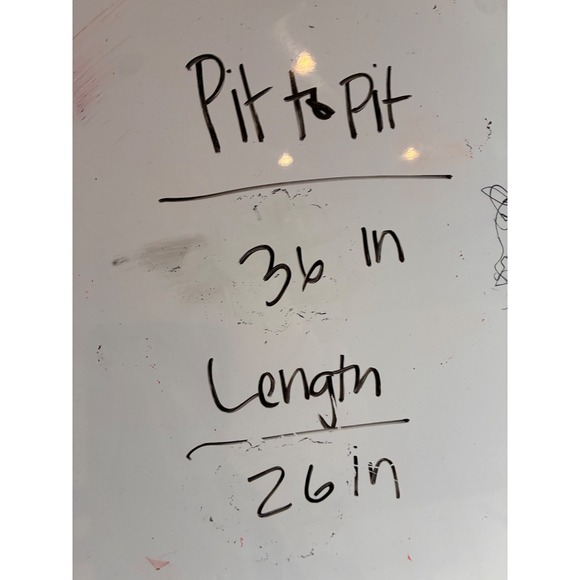 Pit to Pit
36 in
Length
26 in